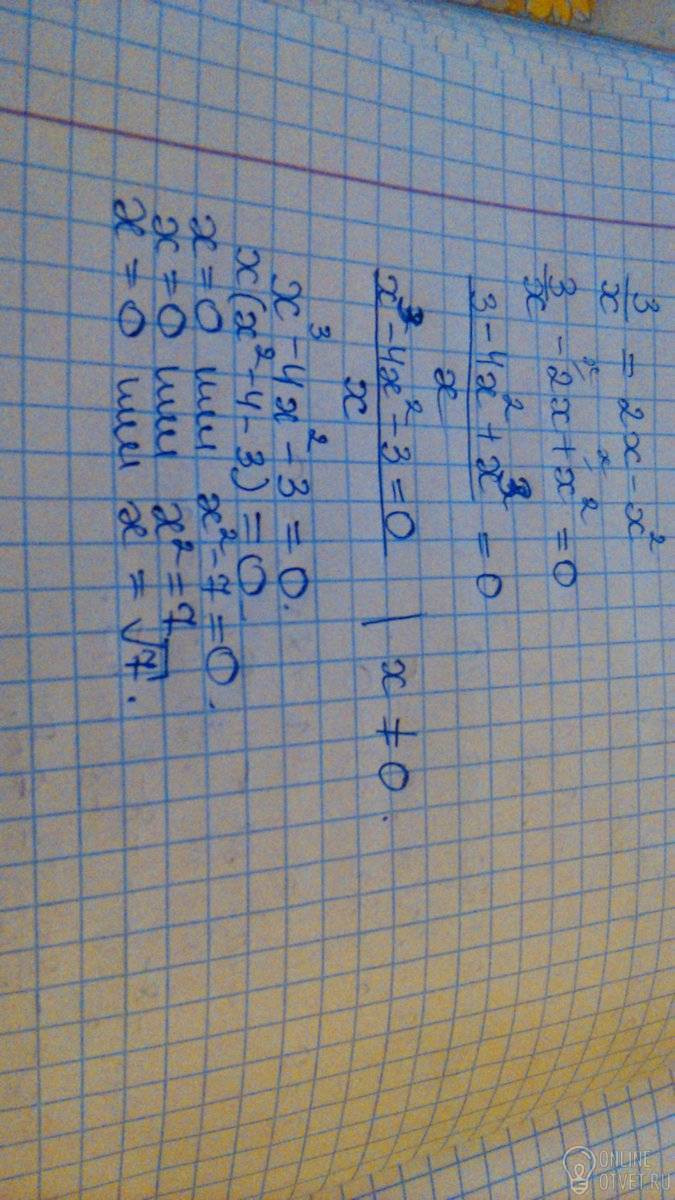 3/x = 2x - x²
3/x - 2x + x² = 0
(3 - 4x² + x³)/x = 0
(x³ - 4x² - 3 = 0)/x | x ≠ 0.
x³ - 4x² - 3 = 0.
x(x² - 4 - 3) = 0
x = 0 или x² - 7 = 0.
x = 0 или x² = 7
x = 0 или x = √7.
ONLINE
OTVET.RU